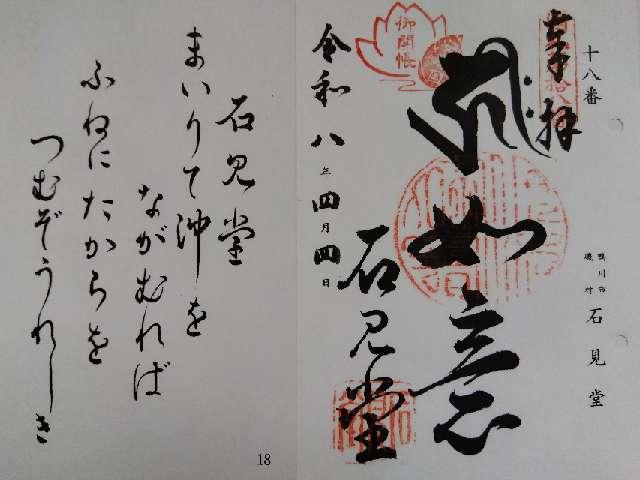 十八番
鴨川市
磯村
石見堂
奉拝
如意
石見堂
令和八年四月四日
御開帳
石見堂
まいりて沖を
ながむれば
ふねにたからを
つむぞうれしき
18